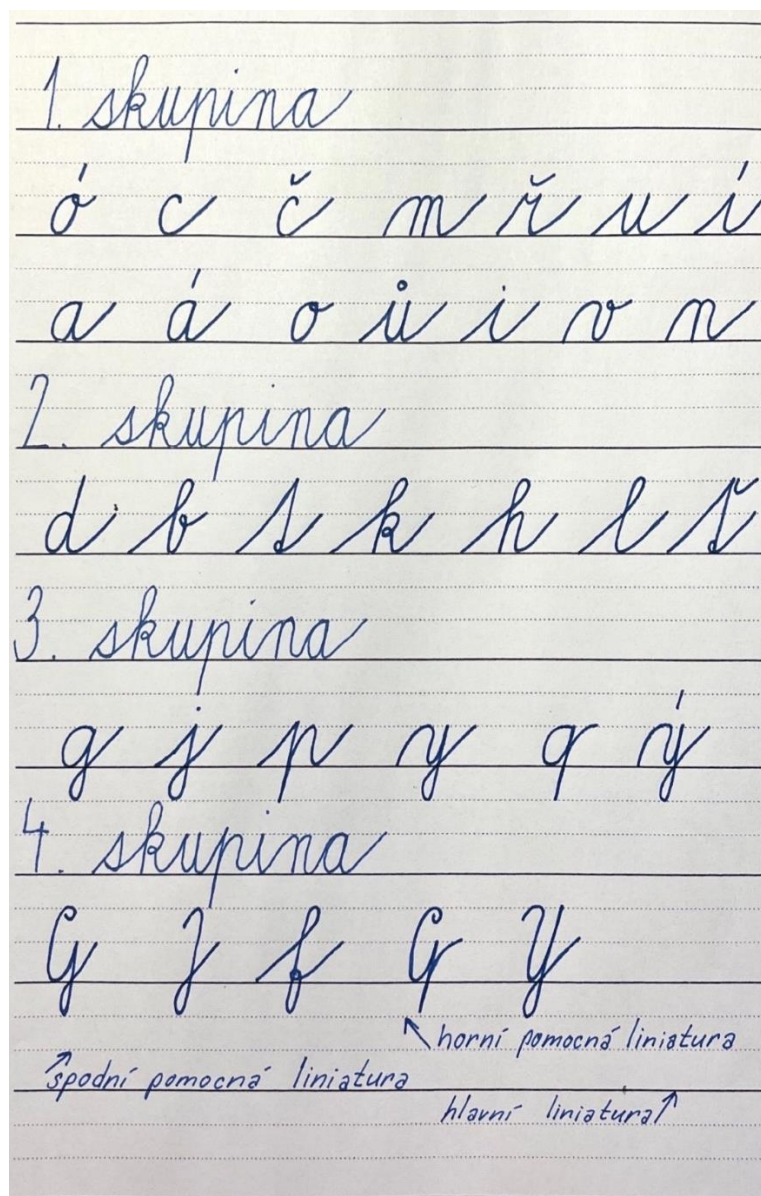 1. skupina
ó c č m ř u í
a á o ů i v n
2. skupina
d b t k h l ť
3. skupina
g j p y q ý
4. skupina
G J f Q Y
horní pomocná liniatura
spodní pomocná liniatura
hlavní liniatura